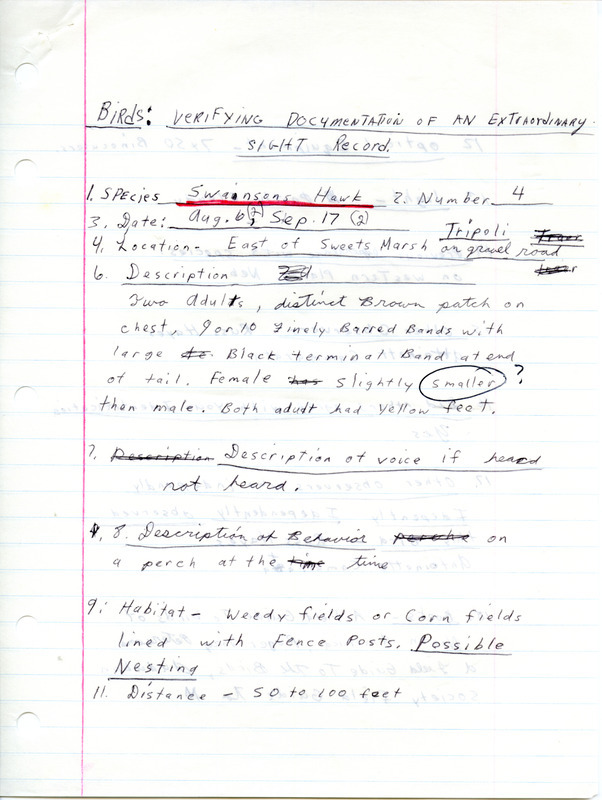 Birds: Verifying Documentation of an Extraordinary
Sight Record.
1. Species Swainsons Hawk 2. Number 4
3. Date: Aug. 6 (2), Sep. 17 (2)
4. Location - East of Sweets Marsh Tripoli on gravel road
6. Description
Two Adults, distinct Brown patch on
chest, 9 or 10 Finely Barred Bands with
large Black terminal Band at end
of tail. Female slightly smaller ?
then male. Both adult had Yellow feet.
7. Description Description of voice if heard
not heard.
8. Description of Behavior perche on
a perch at the time time
9. Habitat - Weedy fields or Corn fields
lined with Fence Posts. Possible
Nesting
11. Distance - 50 to 100 feet